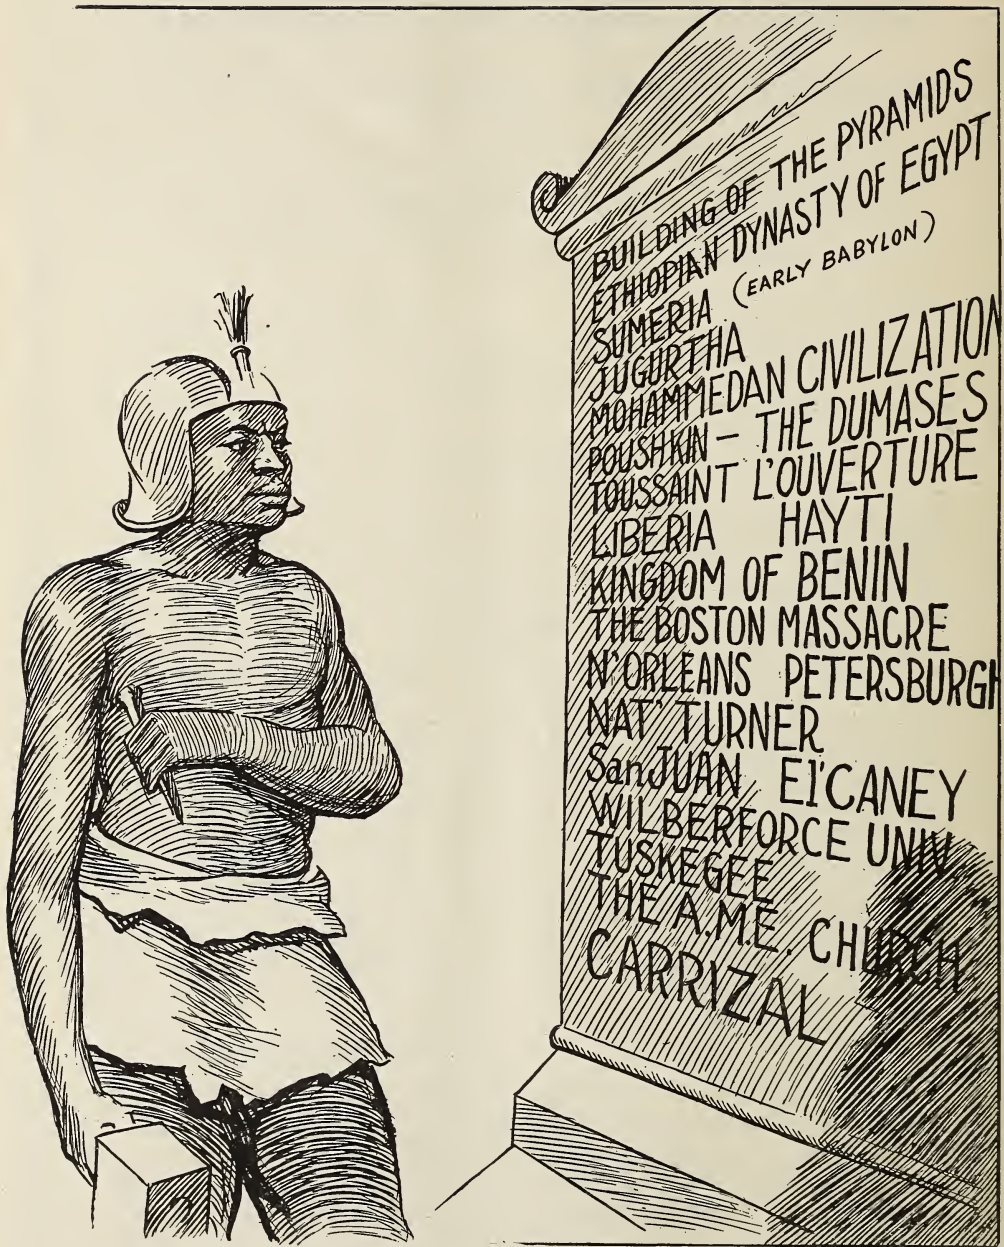 BUILDING OF THE PYRAMIDS
ETHIOPIAN DYNASTY OF EGYPT
SUMERIA (EARLY BABYLON)
JUGURTHA
MOHAMMEDAN CIVILIZATION
POUSHKIN — THE DUMASES
TOUSSAINT L'OUVERTURE
LIBERIA HAYTI
KINGDOM OF BENIN
THE BOSTON MASSACRE
N'ORLEANS PETERSBURGH
NAT' TURNER
San JUAN El'CANEY
WILBERFORCE UNIV.
TUSKEGEE
THE A.M.E. CHURCH
CARRIZAL